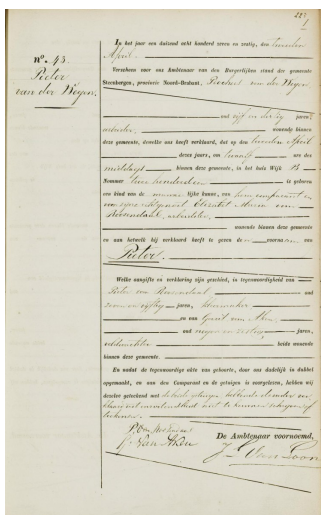 N°. 43.
Pieter
van der Wegen.
In het jaar een duizend acht honderd zeven en zestig, den tweeden
April
Verscheen voor ons Ambtenaar van den Burgerlijken stand der gemeente
Steenbergen, provincie Noord-Braband, van der Wegen
oud vijf en dertig jaren,
arbeider, wonende binnen
deze gemeente, dewelke ons heeft verklaard, dat op den tweeden April
dezes jaars, om twaalf ure des
middags binnen deze gemeente, in het huis Wijk B
Nummer twee honderd is geboren
een kind van de mannelijke kunne, van hem comparant en
van zijne echtgenoot Maria van
Roosendaal, arbeidster,
wonende binnen deze gemeente
en aan hetwelk hij verklaard heeft te geven den voornaam van
Pieter.
Welke aangifte en verklaring zijn geschied, in tegenwoordigheid van
Pieter van Roosendaal oud
zeven en vijftig jaren,
en van Gerrit van Aken,
oud negen en zestig jaren,
veldwachter beide wonende
binnen deze gemeente.
En nadat de tegenwoordige akte van geboorte, door ons dadelijk in dubbel
opgemaakt, en aan den Comparant en de getuigen is voorgelezen, hebben wij
dezelve geteekend met de beide getuigen hebbende de vader ver-
klaard uit niet te kunnen schrijven of
teekenen.
G. Van Aken
De Ambtenaar voornoemd,
Van Loon